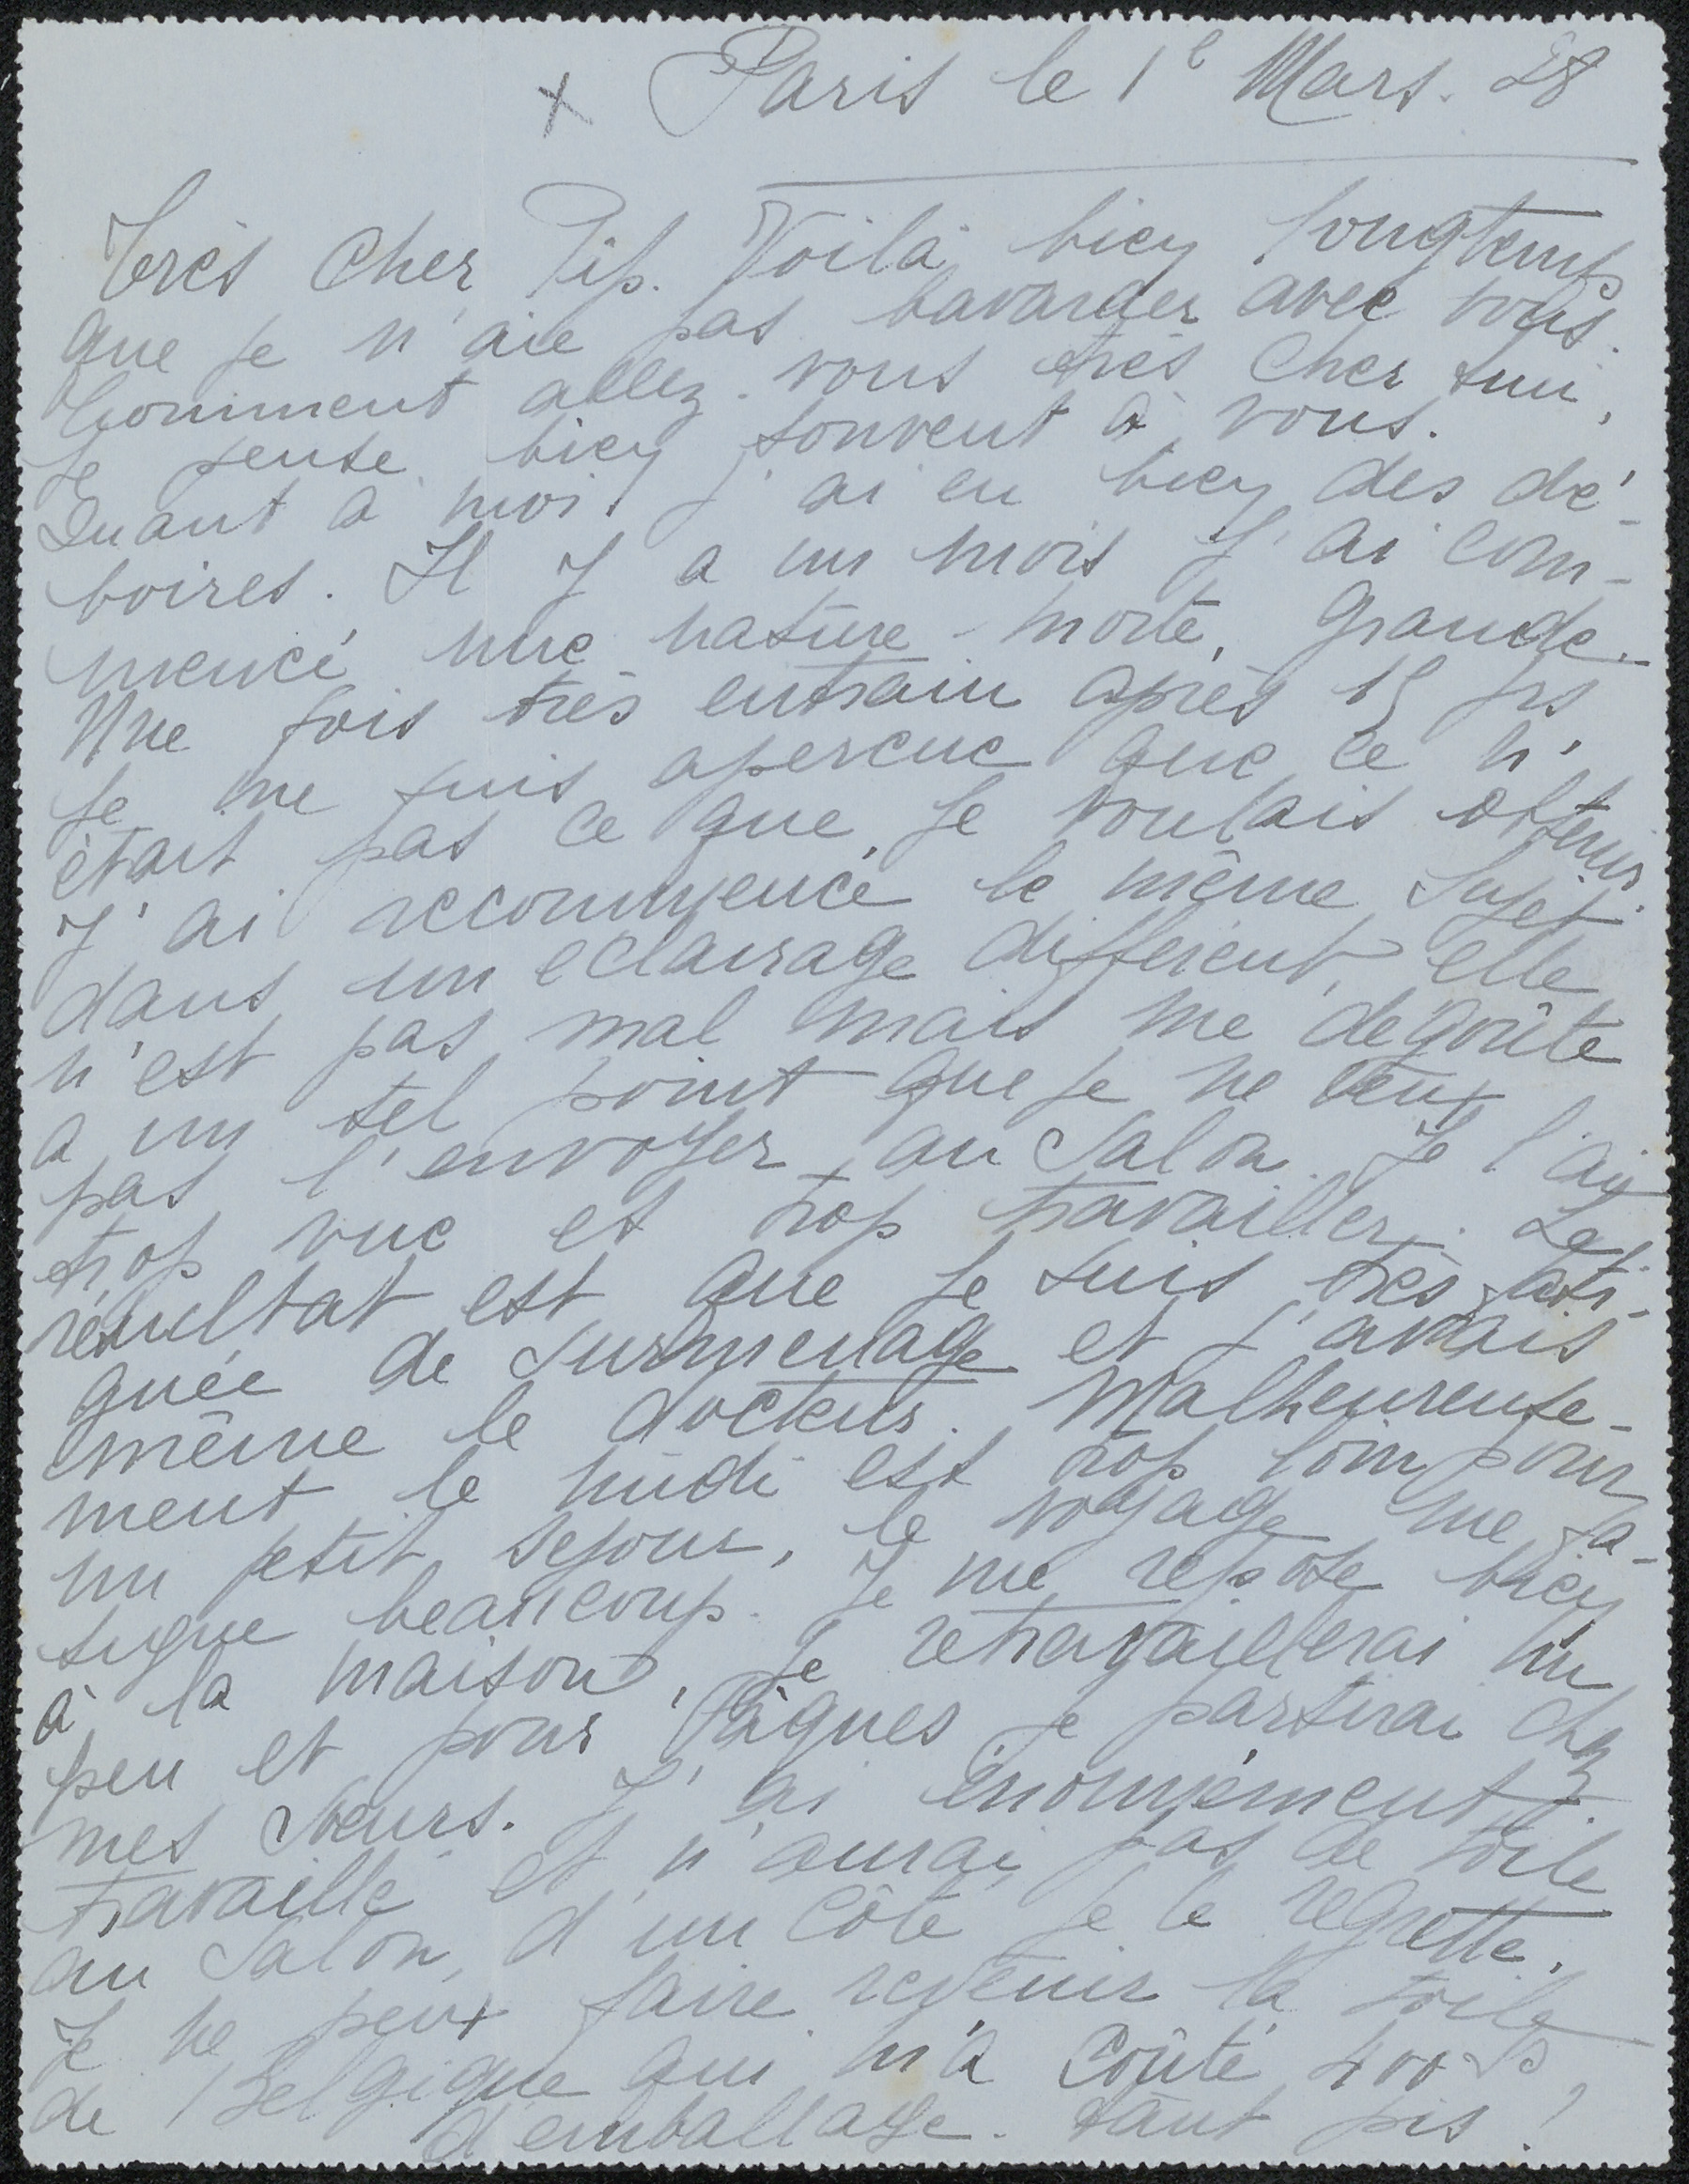 x Paris le 1e Mars. 28
Très Cher Pip. Voilà bien longtemps
que je n'aie pas bavarder avec vous.
Comment allez-vous très Cher ami,
Je pense bien souvent à vous.
Quant à moi j'ai eu bien des dé-
boires. Il y a un mois j'ai com-
mencé une nature-morte, grande.
Une fois très entrain après 15 jrs
Je me suis apercue que ce n'
était pas ce que je voulais obtenir.
J'ai recommencé le même sujet
dans un eclairage différent, elle
n'est pas mal mais me dégoûte
a un tel point que je ne veux
pas l'envoyer au Salon. Je l'ai
trop vue et trop travailler. Le
résultat est que je suis très fati-
guée de surmenage et j'avais
même le docteur. Malheureuse-
ment le midi est trop loin pour
un petit sejour, le voyage me fa-
tigue beaucoup. Je me repose bien
à la maison, Je retravaillerai un
peu et pour Pâques je partirai chez
mes soeurs. J'ai énormément
travaillé et n'aurai pas de toile
au Salon, d'un côté je le regrette.
Je ne peux faire revenir la toile
de Belgique qui m'a coûté 400 frs
d'emballage. tant pis !